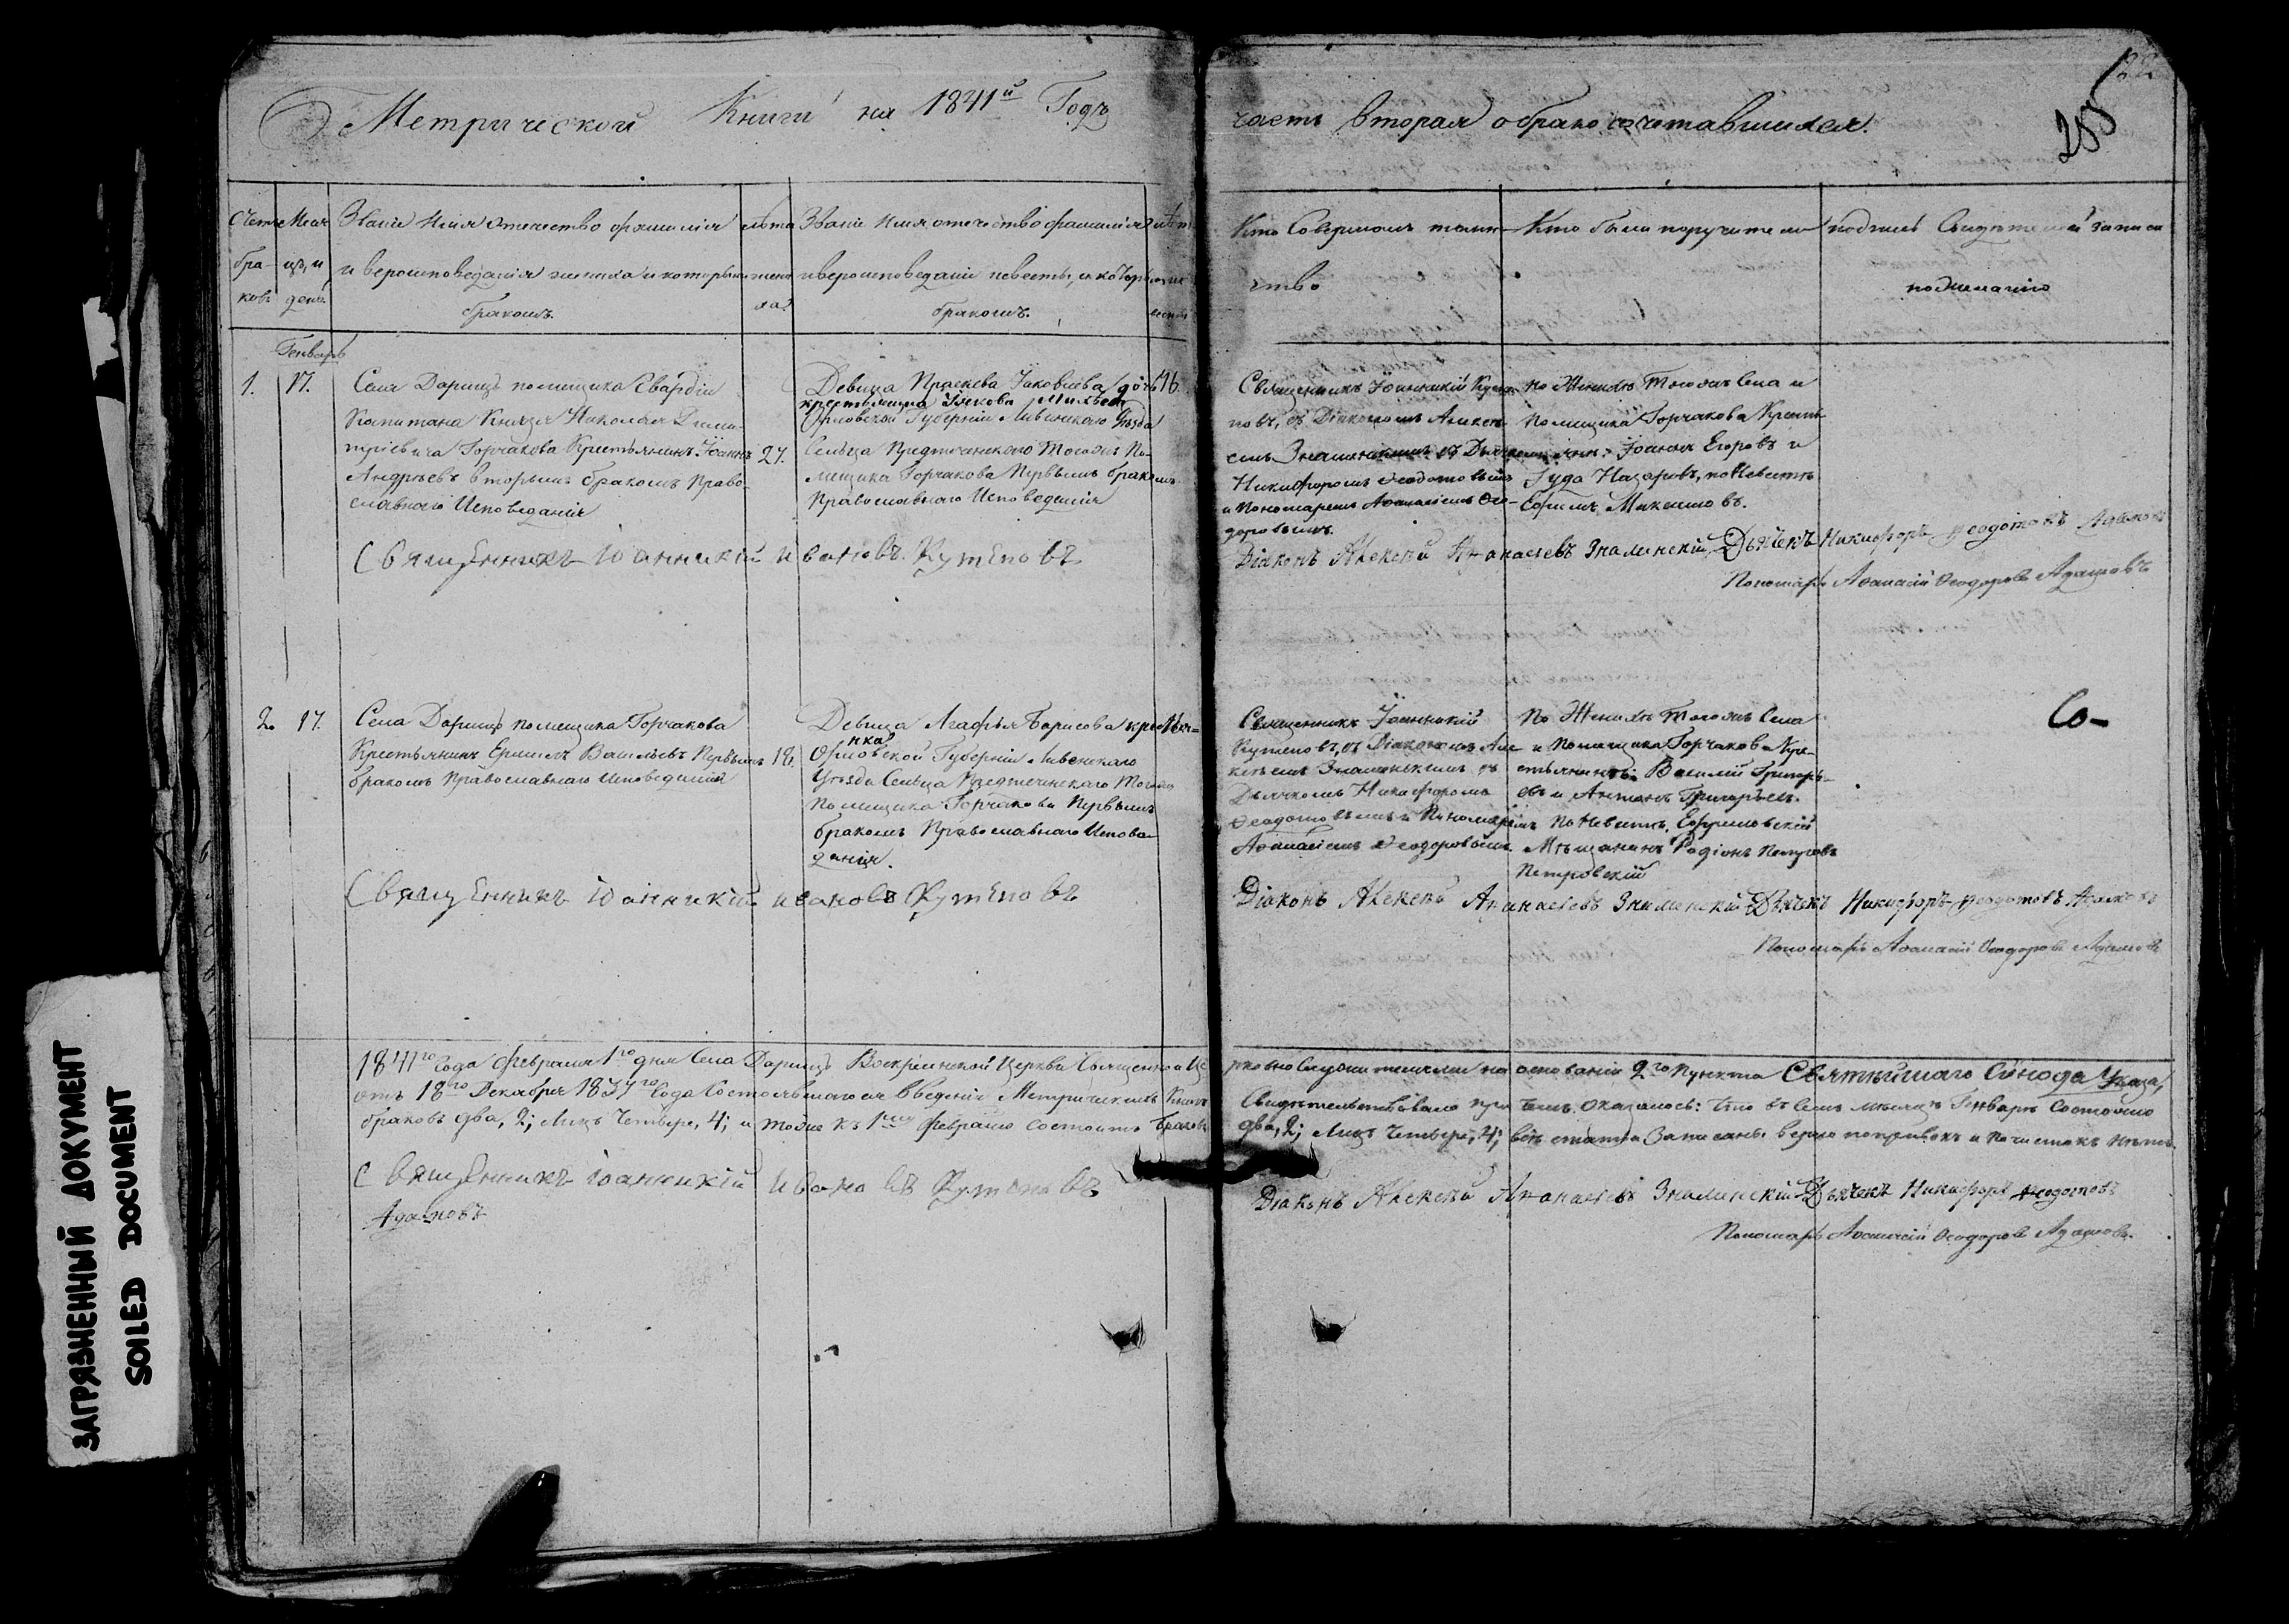 Метрической Книги на 1841й Годъ
часть вторая о бракосочетавшихся.
255
Счетъ браковъ
Месяцъ, и день.
Званіе имя отечество фамилія
и вероисповеданія жениха и которымъ
бракомъ.
лета жениха
Званіе имя отечество фамилія
и вероисповеданіе невесты, и которымъ
бракомъ.
Кто Совершалъ таин-
ство
Кто были поручители
подпись Свидетелей записи
по желанію
Генварь
1. 17.
Села Дарищъ помещика Гвардіи
Капитана Князя Николая Дими-
тріевича Горчакова Крестьянинъ Іоаннъ
Андреевъ вторымъ бракомъ Право-
славнаго Исповеданія
27.
Девица Праскева Іаковлева дочь
крестьянина Іякова
Орловской Губерніи Ливенскаго Уезда
Сельца Предтеченскаго Тогожъ По-
мещика Горчакова Первымъ бракомъ
Православнаго Исповеданія
16.
Священникъ Іоанникій Куте-
повъ, съ Діакономъ Алексе-
емъ Знаменскимъ съ Дьячкомъ
Никифоромъ Феодотовымъ
и Пономаремъ Афанасіемъ Фео-
доровымъ.
По Женихе Тогожъ Села и
Помещика Горчакова Кресть-
яни: Іоаннъ Егоровъ и
Гуда Назаровъ, по Невесте
Ефимъ Макеимовъ.
Священникъ Іоанникій Ивановъ Кутеповъ
Діаконъ Алексей Афанасіевъ Знаменскій Дьячекъ Никифоръ Феодотовъ Адамовъ
Пономарь Афанасій Феодоровъ Адамовъ
2. 17.
Села Дарищъ помещика Горчакова
Крестьянинъ Ермилъ Васильевъ Первымъ
бракомъ Православнаго Исповеданія
18.
Девица Агафья Борисова крестьян-
нка
Орловской Губерніи Ливенскаго
Уезда Сельца Предтеченскаго Тогожъ
Помещика Горчакова Первымъ
бракомъ Православнаго Испове-
данія.
Священникъ Іоанникій
Кутеповъ, съ Діакономъ Але-
ксеемъ Знаменскимъ съ
Дьячкомъ Никифоромъ
Феодотовымъ и Пономаремъ
Афанасіемъ Феодоровымъ
По Женихе Тогожъ Села
и Помещика Горчакова Кре-
стьянинъ: Василій Григорь-
евъ и Антонъ Григорьевъ.
По Невесте, Ефремовскій
Мещанинъ Родіонъ Петровъ
Петровскій
Со-
Священникъ Іоанникій Ивановъ Кутеповъ
Діаконъ Алексей Афанасіевъ Знаменскій Дьячекъ Никифоръ Феодотовъ Адамовъ
Пономарь Афанасій Феодоровъ Адамовъ
1841го Года Февраля 1го дня Села Дарищъ Воскресенской Церкви Священно и Це рковно Служителями на основаніи 2го Пункта Святейшаго Синода Указа,
отъ 18го Декабря 1837го Года Состоявшагося о введеніи Метрическихъ Книгъ Свидетельствовано при чемъ оказалось: Что въ семъ месяце Генваре Состояло
браковъ два, 2; Лицъ Четыре, 4; и тоже къ 1му Февралю состоитъ Браковъ два, 2; Лицъ Четыре, 4; все статьи Записаны верно поправокъ и почистокъ нетъ
Священникъ Іоанникій Ивановъ Кутеповъ
Діаконъ Алексей Афанасіевъ Знаменскій Дьячекъ Никифоръ Феодотовъ
Адамовъ
Пономарь Афанасій Феодоровъ Адамовъ.
ЗАГРЯЗНЕННЫЙ ДОКУМЕНТ
SOILED DOCUMENT